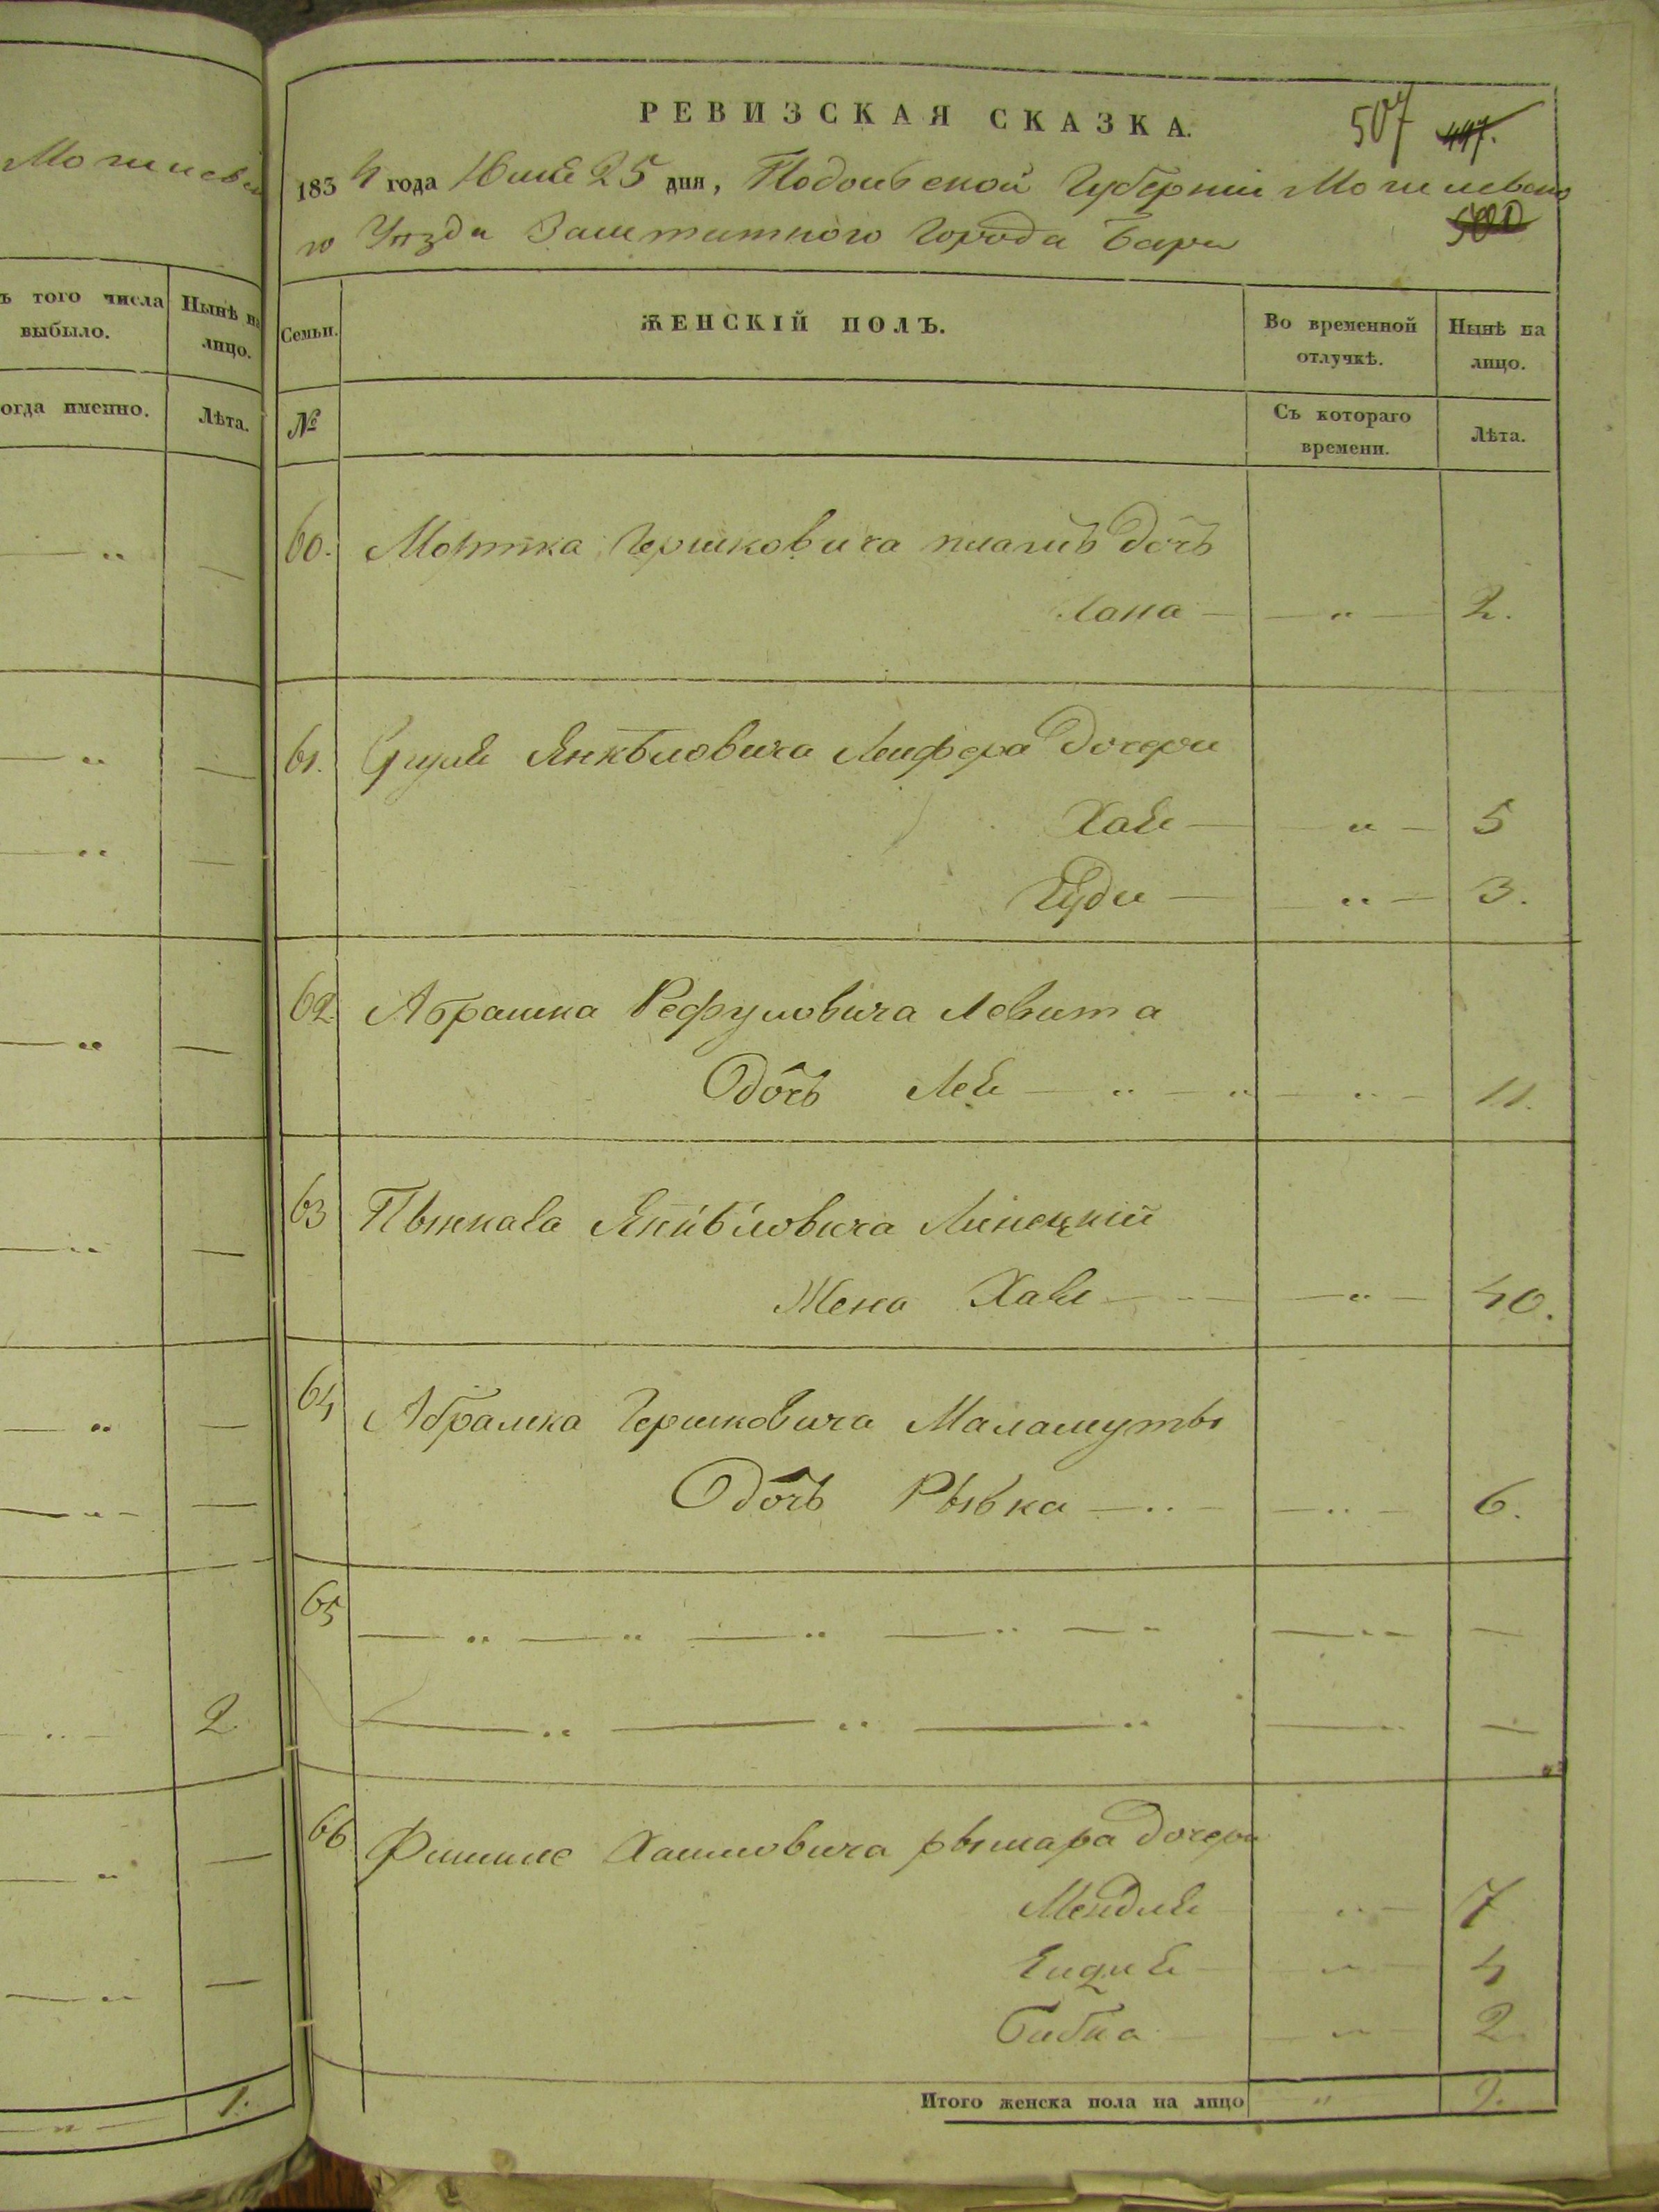 Могилевска
ъ того числа
выбыло.
Нынѣ на
лицо.
огда именно.
Лѣта.
2
1.
РЕВИЗСКАЯ СКАЗКА.
507 497.
1834 года Июня 25 дня, Подольской Губерніи Могилевска
го Уѣзда Заштатного Города Бара
500
Семьи.
ЖЕНСКІЙ ПОЛЪ.
Во временной
отлучкѣ.
Нынѣ на
лицо.
№
Съ котораго
времени.
Лѣта.
60. Мортка Гершковича дочь
Хана — „ — 2.
61. Янкѣловича Лейфера дочери
Хая — „ — 5
Гуды — „ — 3.
62 Абрамка Рефуловича Левита
дочь Лея — „ — „ — „ — 11.
63 Янкѣловича Линецкій
Жена Хая — „ — 40.
64 Абрамка Гершковича Маламуты
дочь Рывка — „ — „ — 6.
65 — „ — „ — „ — „ — „ — „ —
— „ — „ — „ — „ —
66 Фишиле Хаимовича рымара дочери
Мендля „ — 7
„ — 4
Бибка — „ — 2
Итого женска пола на лицо „ 9.